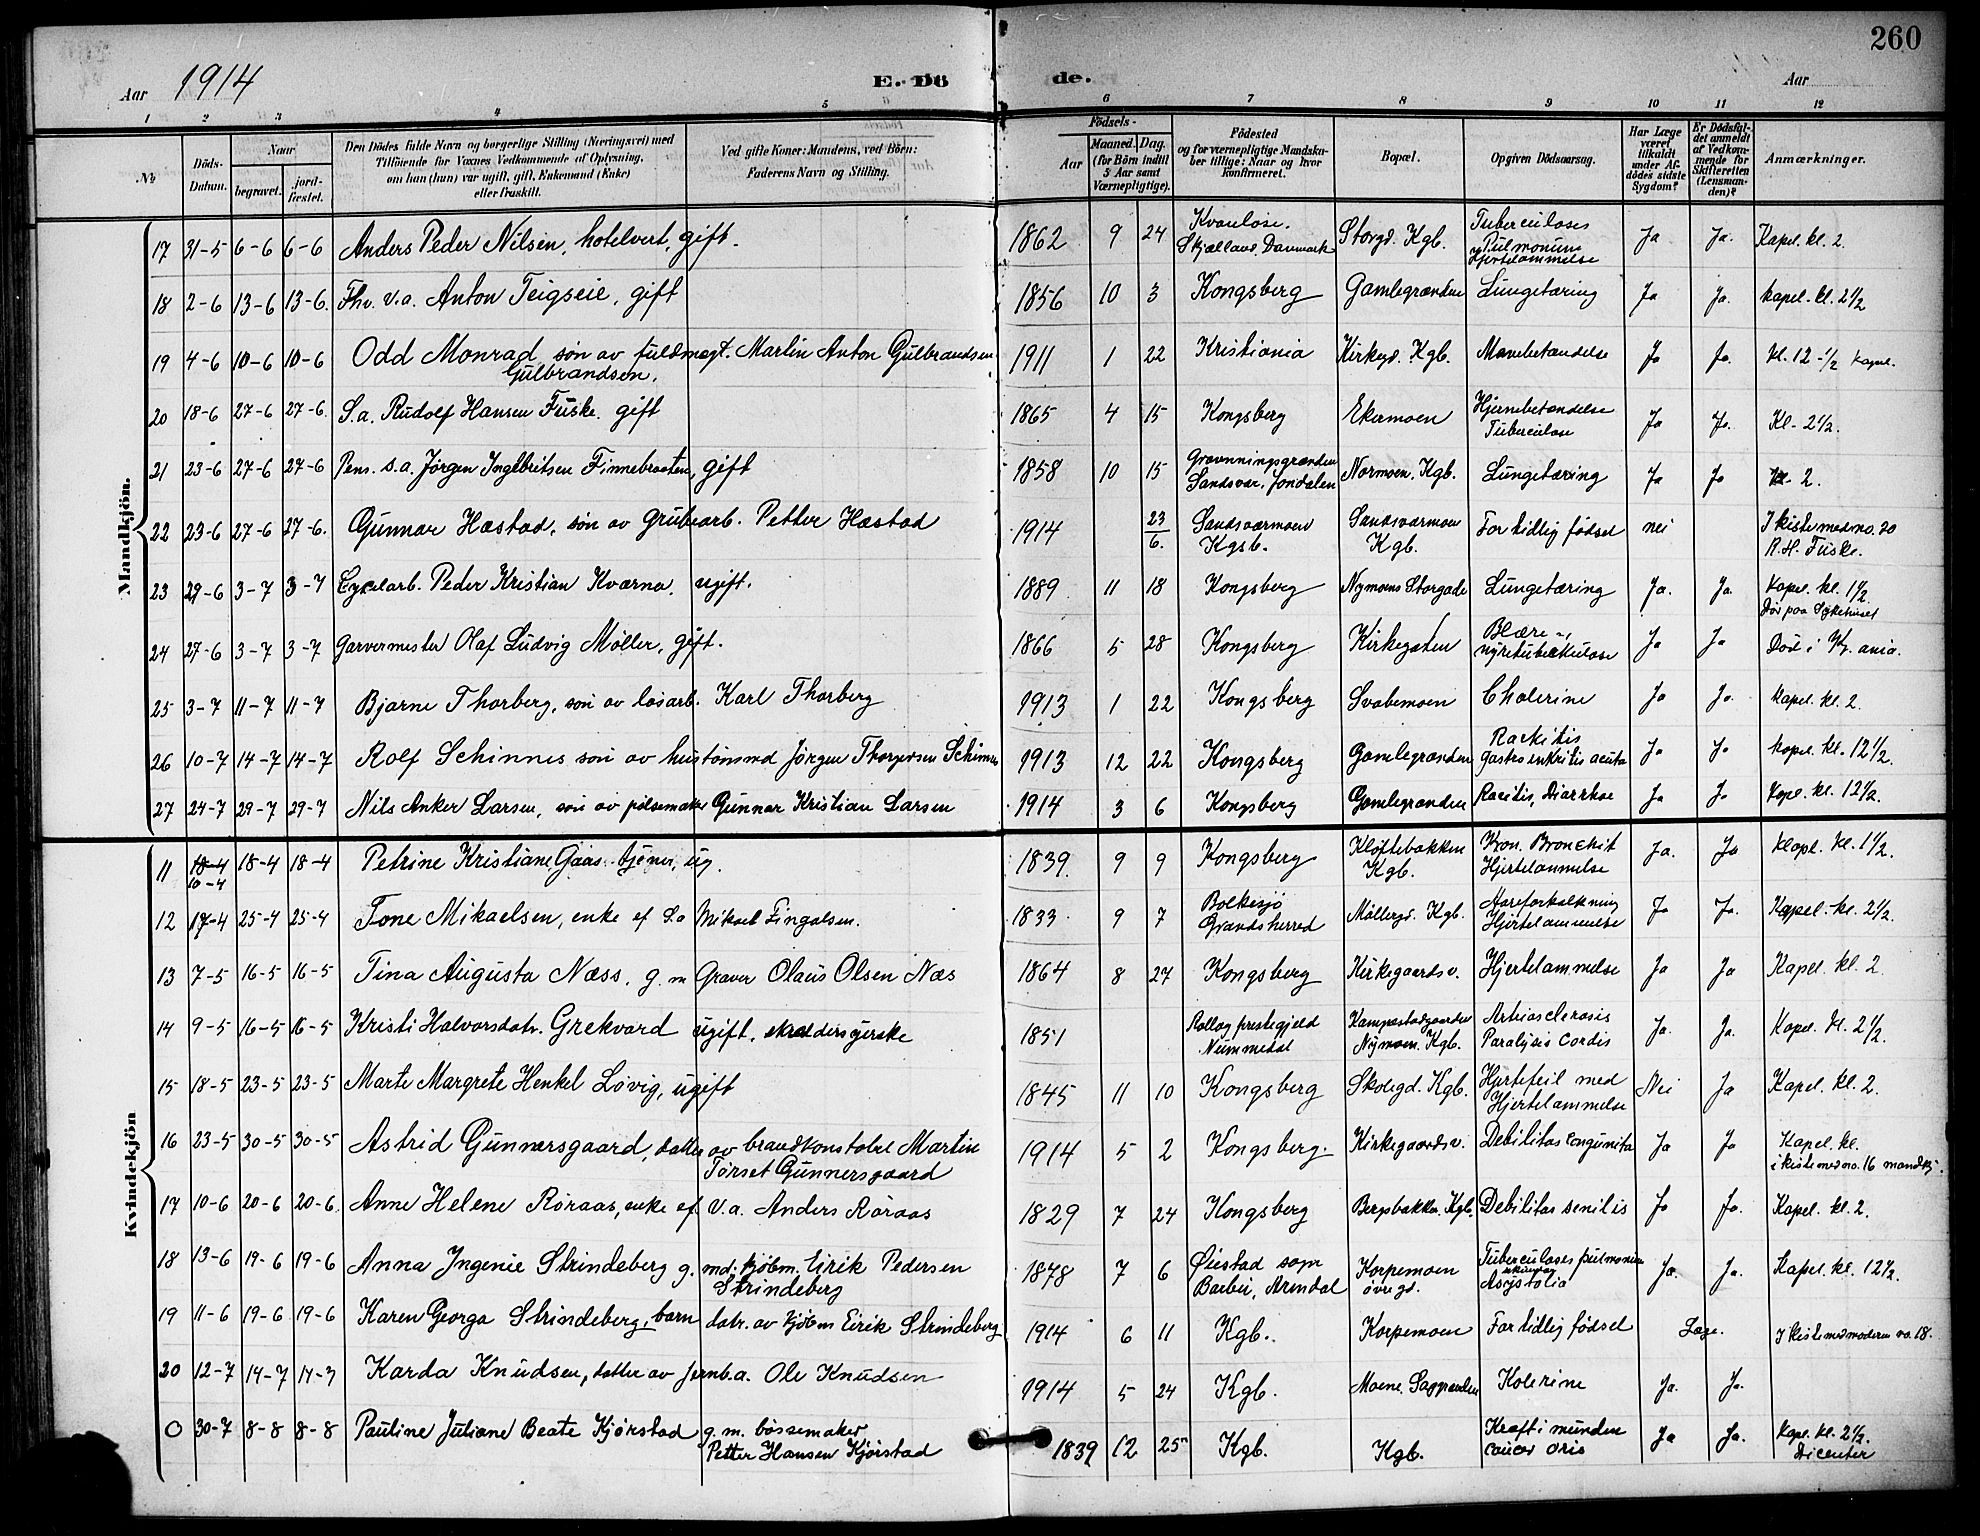 260
Aar 1914 E. Dö de. Aar
1 2 3 4 5 6 7 8 9 10 11 12
No Döds-Datum. Naar begravet. jord-fæstet. Den Dödes fulde Navn og borgerlige Stilling (Næringsvei) med Tilföiende for Voxnes Vedkommende af Oplysning, om han (hun) var ugift, gift, Enkemand (Enke) eller fraskilt. Ved gifte Koner: Mandens, ved Börn: Faderens Navn og Stilling. Födsels- Aar Maaned. Dag. (for Börn indtil 5 Aar samt Værnepligtige). Födested og for værnepligtige Mandskaber tillige: Naar og hvor konfirmeret. Bopæl. Opgiven Dödsaarsag. Har Læge været tilkaldt under Afdödes sidste Sygdom? Er Dödsfaldet anmeldt af Vedkommende for Skifteretten (Lensmanden)? Anmærkninger.
Mandkjön.
17 31-5 6-6 6-6 Anders Peder Nilsen, hotelvert, gift. 1862 9 24 Kvanløse. Skjælland, Danmark Storgd. Kgb. Tuberculoses Pulmonum Hjertelammelse Ja Ja. Kapel. kl. 2.
18 2-6 13-6 13-6. Fhv. v.a. Anton Teigseie, gift 1856 10 3 Kongsberg Gamlegrænden Lungetæring Ja Ja. kapel. kl. 2 1/2
19 4-6 10-6 10-6 Odd Monrad søn av fuldmægt. Martin Anton Gulbrandsen 1911 1 22 Kristiania Kirkegd. Kgb. Mavebetændelse Ja Ja. kl. 12-1/2 kapel.
Gulbrandsen.
20 18-6 27-6 27-6. S.a. Rudolf Hansen Fuske. gift 1865 4 15 Kongsberg Ekermoen Hjernebetændelse Tuberculose Ja Ja. Kl. 2 1/2.
21 23-6 27-6 27-6 Pens. s.a. Jørgen Ingebritsen Finnebraaten, gift 1858 10 15 Sandsvær, Jondalen Normoen. Kgb. Lungetæring Ja Ja 2.
22 23-6 27-6 27-6. Gunnar Hæstad, søn av grubearb. Petter Hæstad 1914 23/6. Sandsværmoen Kgsb. Sandsværmoen Kgb. For tidlig fødsel nei I kiste med no. 20 R.H. Fuske.
23 29-6 3-7 3-7 Peder Kristian Kværna, ugift. 1889 11 18 Kongsberg Nymoens Storgade Lungetæring Ja. Ja. Kapel. kl. 1 1/2. Død paa Sykehuset
24 27-6 3-7 3-7 Garvermester Olaf Ludvig Møller, gift. 1866 5 28 Kongsberg Kirkegaten Blære-, nyretuberkulose Ja Ja Død i Kr. ania.
25 3-7 11-7 11-7 Bjarne Thorberg, søn av løsarb. Karl Thorberg 1913 1 22 Kongsberg Svabemoen Cholerine Ja Ja. kapel. kl. 2.
26 10-7 14-7 14-7 Rolf Schinnes søn av hustømmd Jörgen Thorgersen Schinnes 1913 12 22 Kongsberg Gamlegrænden Rackitis gastroenkritis acuta Ja Ja kapel. kl. 12 1/2.
27 24-7 29-7 29-7 Nils Anker Larsen, søn av pølsemaker Gunnar Kristian Larsen 1914 3 6 Kongsberg Gamlegrænden Racitis, Diarrhoe Ja Ja Kapel. kl. 12 1/2.
Kvindekjön
11 18-4 10-4 18-4 18-4 Petrine Kristiane Gaas. tjener, ug. 1839. 9 9 Kongsberg Kløftebakken Kgb. Kron. Bronchit Hjertelammelse Ja. Ja Kapel. kl. 1 1/2.
12 17-4 25-4 25-4 Tone Mikaelsen, enke ef S.a Mikael Fingalsen. 1833. 9 7 Bolkesjø Grandsherred Møllergd. Kgb. Aareforkalkning Hjertelammelse Ja Ja. Kapel. kl. 2 1/2.
13 7-5 16-5 16-5 Tina Augusta Næss, g. m Graver Olaus Olsen Næs 1864 8 27 Kongsberg Kirkegaardsv. Hjertelammelse Ja Ja Kapel. kl. 2.
14 9-5 16-5 16-5 Kristi Halvorsdatr. Grekvard ugift, skræddersyerske 1851 Rollag prestegjeld Nummedal Kampestadgaarden Nymoen. Kgb. Artriosclerosis Paralysis Cordis Ja. Ja. Kapel. kl. 2 1/2.
15 18-5 23-5 23-5 Marte Margrete Henkel Løvig, ugift 1845 11 10 Kongsberg Skolegd. Kgb. Hjertefeil med Hjertelammelse Nei Ja Kapel. kl. 2.
16 23-5 30-5 30-5 Astrid Gunnersgaard, datter av brandkonstabel Martin 1914 5 2 Kongsberg. Kirkegaardsv. Debilitas congunita Ja Ja Kapel. kl. i kiste med no. 16 mandkj.
Torset Gunnersgaard
17 10-6 20-6 20-6. Anne Helene Røraas, enke ef. V.a. Anders Røraas 1829 7 24 Kongsberg Bergsbakken. Kgb. Debilitas senilis Ja Ja. Kapel. kl. 2.
18 13-6 19-6 19-6 Anna Ingenie Strindeberg g. md. kjøbm. Eirik Pedersen 1878 7 6 Øiestad sogn Barbu, Arendal Korpemoen øvre gd. Tuberculoses pulmonum Asystolia Ja. Ja. Kapel. kl. 12 1/2.
Strindeberg
19 11-6 19-6 19-6 Karen Georga Strindeberg, barn datr. av kjøbm Eirik Strindeberg 1914 6 11 Kgb. Korpemoen For tidlig fødsel Læge. I kiste med moderen no. 18.
20 12-7 14-7 14-7 Karda Knudsen, datter av jernb.a. Ole Knudsen 1914 5 24 Kgb. Kolerine Ja. Ja.
0 30-7 8-8 8-8 Pauline Juliane Beate Kjørstad g. m. bøssemaker 1839 12 25 Kgb. Kgb. Kræft i munden cancer oris Ja Ja. Kapel kl. 2 1/2. Dicenter
Petter Hansen Kjørstad